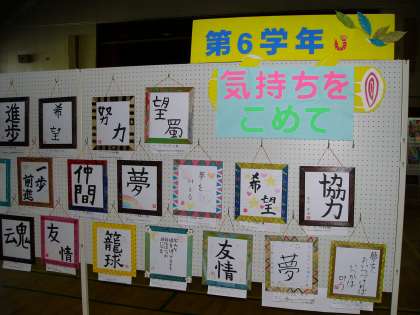 第6学年
気持ちを
こめて
進歩
希望
努力
望蜀
一歩
前進
仲間
夢
希望
協力
魂
友情
籠球
友情
夢
夢を